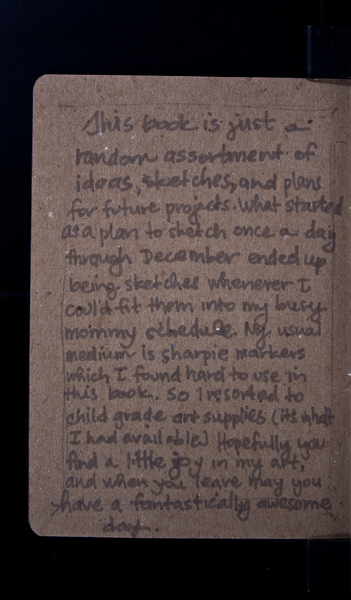 This book is just a
random assortment of
ideas, sketches, and plans
for future projects. What started
as a plan to sketch once a day
through December ended up
being sketches whenever I
could fit them into my busy
mommy schedule. My usual
medium is sharpie markers
which I found hard to use in
this book. So I resorted to
child grade art supplies (its what
I had available) Hopefully you
find a little joy in my art,
and when you leave may you
have a fantastically awesome
day.